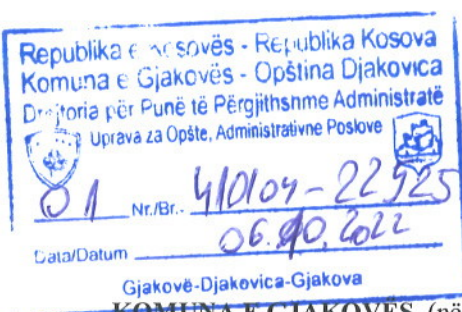 Republika e Kosovës - Republika Kosova
Komuna e Gjakovës - Opština Djakovica
Drejtoria për Punë të Përgjithshme Administratë
Uprava za Opšte, Administrativne Poslove
01 Nr./Br.- 410/04-22925
Data/Datum 06.10.2022
Gjakovë-Djakovica-Gjakova
KOMUNA E GJAKOVËS, (në